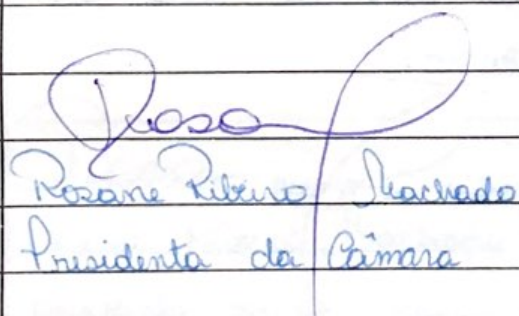 Rosa
Rozane Ribeiro Machado
Presidenta da Câmara